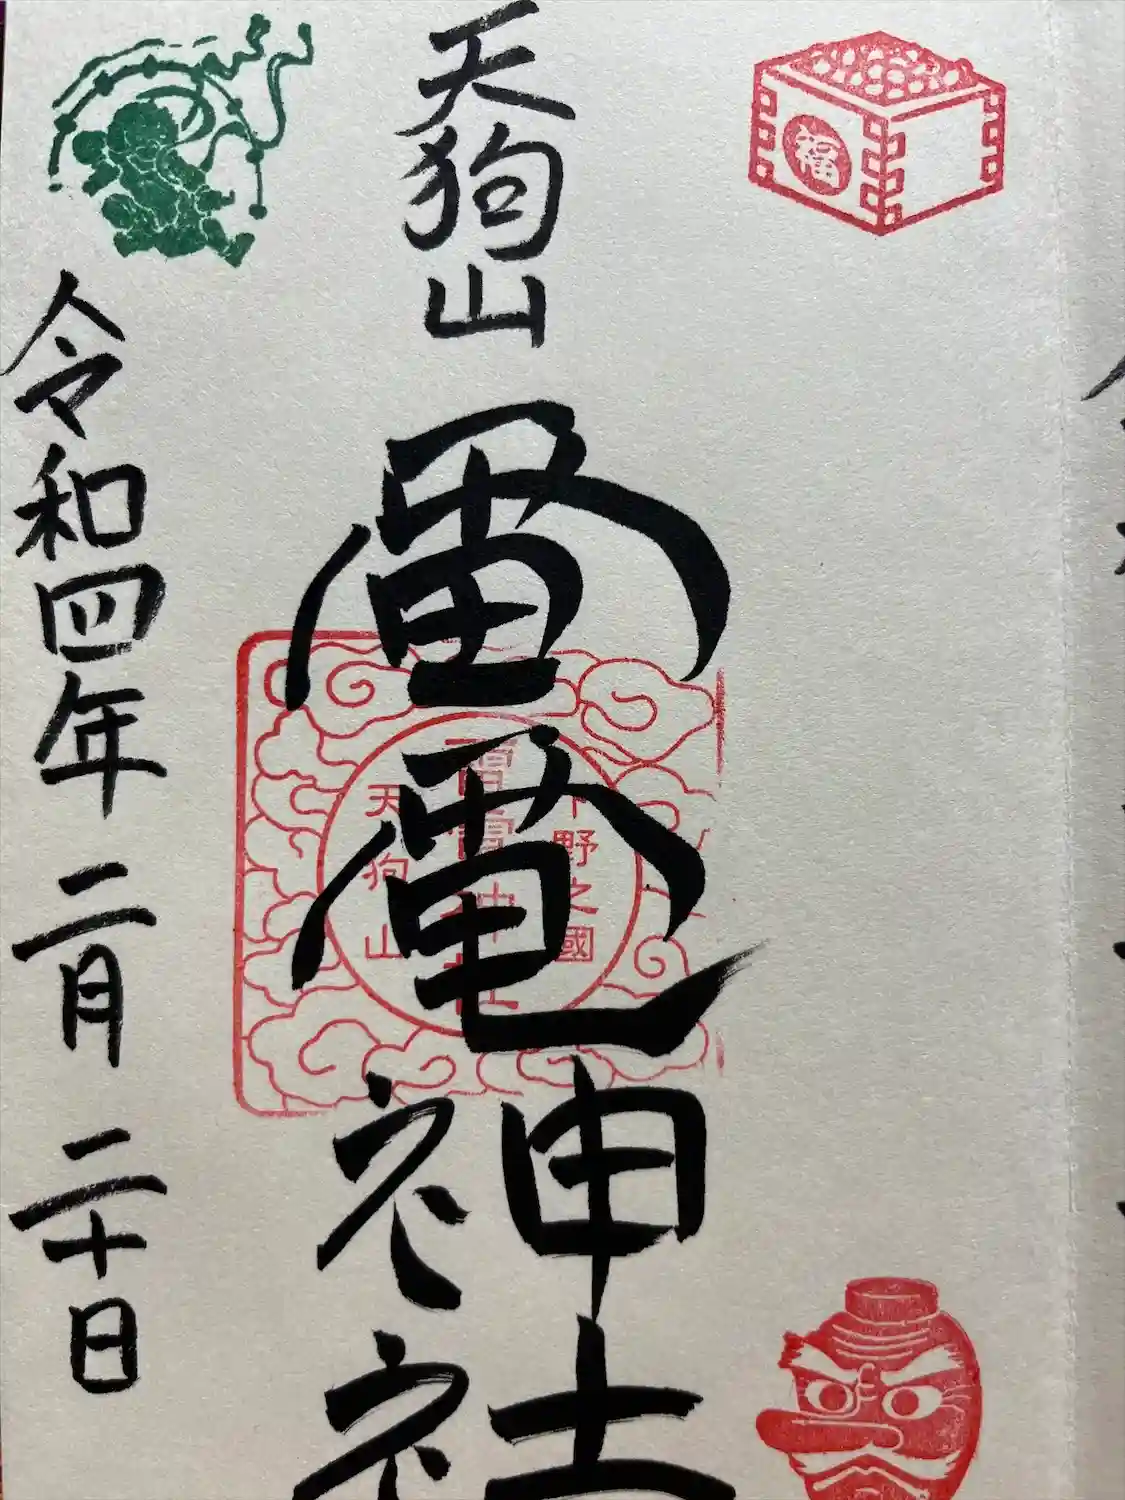 福
天狗山
雷電神社
下野之國
雷電神社
天狗山
令和四年 二月 二十日